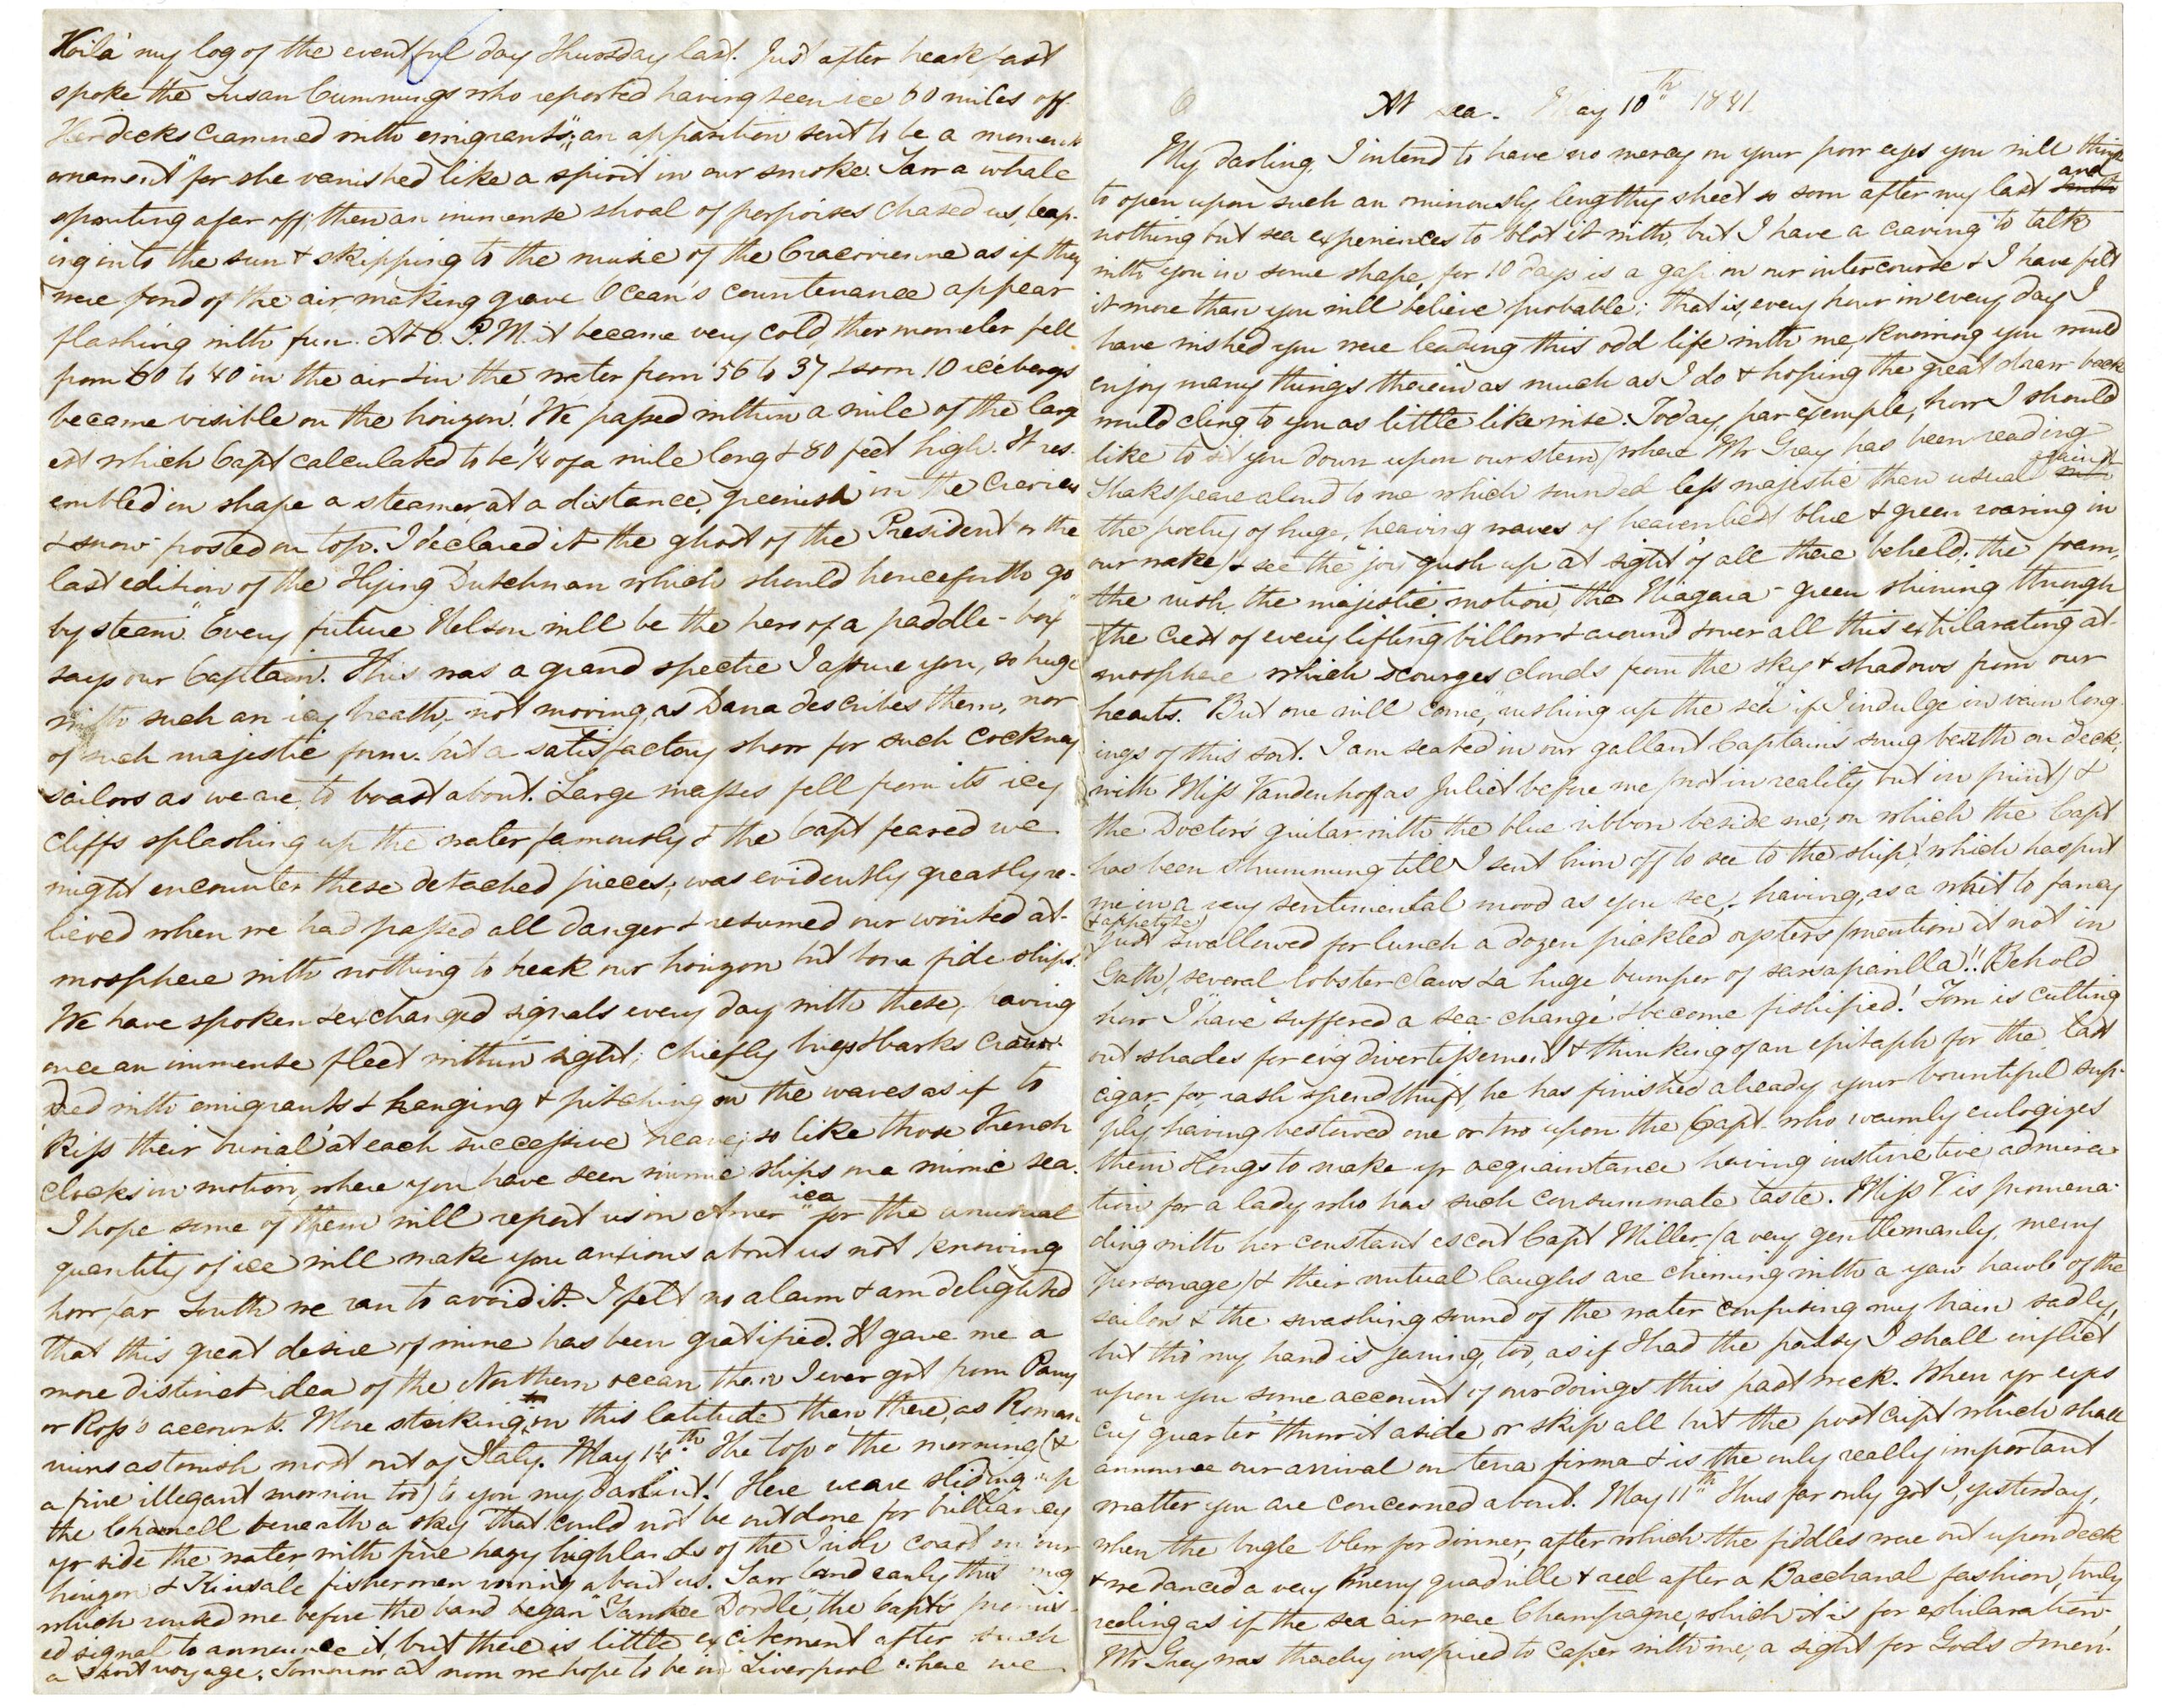 Voilà my log of the eventful day Thursday last. Just after breakfast
spoke the Susan Cummings who reported having seen ice 60 miles off.
Her decks crammed with emigrants; "an apparition sent to be a moment's
ornament" for she vanished like a spirit in our smoke. Saw a whale
spouting afar off; then an immense shoal of porpoises chased us, leap-
ing into the sun & skipping to the music of the Cracovienne as if they
were fond of the air, making grave Ocean's countenance appear
flashing with fun. At 6. P.M. it became very cold, thermometer fell
from 60 to 40 in the air & in the water from 56 to 37 & soon 10 icebergs
became visible on the horizon! We passed within a mile of the larg
est which Capt calculated to be 1/4 of a mile long & 80 feet high. It res-
embled in shape a steamer at a distance, greenish in the crevices
& snow-frosted on top. I declared it the ghost of the President or the
last edition of the Flying Dutchman which should henceforth "go
by steam." "Every future Nelson will be the hero of a paddle-box"
says our Captain. This was a grand spectre I assure you, so huge
with such an icy breath, not moving, as Dana describes them, nor
of such majestic form but a satisfactory show for such cockney
sailors as we are, to boast about. Large masses fell from its icy
cliffs splashing up the water famously & the Capt feared we
might encounter these detached pieces; was evidently greatly re-
lieved when we had passed all danger & resumed our wonted at-
mosphere with nothing to break our horizon but bona fide ships.
We have spoken & exchanged signals every day with these, having
once an immense fleet within sight; chiefly brigs & barks crow-
ded with emigrants & hanging & pitching on the waves as if to
'kiss their burial' at each successive heave; so like those French
clocks in motion, where you have seen mimic ships on a mimic sea.
I hope some of them will report us in America for the unusual
quantity of ice will make you anxious about us not knowing
how far South we ran to avoid it. I felt no alarm & am delighted
that this great desire of mine has been gratified. It gave me a
more distinct idea of the Northern ocean than I ever got from Parry
or Ross's accounts. More striking in this latitude than there, as Roman
ruins astonish most out of Italy. May 14th. The top o' the morning (&
a fine illegant mornin too) to you my Darlint! Here we are sliding up
the Channell beneath a sky that could not be outdone for brilliancy
yr side the water, with fine hazy highlands of the Irish coast on our
horizon & Kinsale fishermen around about us. Saw land early this mng
which roused me before the band began "Yankee Doodle", the Capt's promis-
ed signal to announce it, but there is little excitement after such
a short voyage. Tomorrow at noon we hope to be in Liverpool where we
At sea. May 10th 1841.
My darling, I intend to have no mercy on your poor eyes you will think
to open upon such an ominously lengthy sheet so soon after my last and
nothing but sea experiences to blot it with, but I have a craving to talk
with you in some shape, for 10 days is a gap in our intercourse & I have felt
it more than you will believe probable; that is, every hour in every day I
have wished you were leading this odd life with me, knowing you would
enjoy many things therein as much as I do & hoping the great draw-back
would cling to you as little likewise. Today, par exemple, how I should
like to sit you down upon our stern (where Mr Gray has been reading
Shakspeare aloud to me which sounded less majestic than usual against
the poetry of huge, heaving waves of heavenliest blue & green roaring in
our wake) & see the "joy gush up at sight" of all there beheld; the foam,
the rush, the majestic motion, the Niagara-green shining through
the crest of every lifting billow & around & over all this exhilarating at-
mosphere which scourges clouds from the sky & shadows from our
hearts. But one will come, "rushing up the sea" if I indulge in vain long-
ings of this sort. I am seated in our gallant Captain's snug berth on deck,
with Miss Vandenhoff as Juliet before me (not in reality but in print) &
the Doctor's guitar with the blue ribbon beside me, on which the Capt
has been strumming till I sent him off to see to the ship! which has put
me in a very sentimental mood as you see, having, as a whet to fancy
(& appetite)
just swallowed for lunch a dozen pickled oysters (mention it not in
Gath), several lobster claws & a huge bumper of sarsaparilla!! Behold
how I have "suffered a sea-change" & become fishified! Tom is cutting
out shades for evg divertissement & thinking of an epitaph for the last
cigar, for, rash spendthrift, he has finished already your bountiful sup-
ply having bestowed one or two upon the Capt. who warmly eulogizes
them & longs to make yr acquaintance having instinctive admira-
tion for a lady who has such consummate taste. Miss V is promena-
ding with her constant escort Capt Miller (a very gentlemanly, merry
personage) & their mutual laughs are chiming with a yaw hawl of the
sailors & the swashing sound of the water confusing my brain sadly,
but tho' my hand is jerking, too, as if I had the palsy I shall inflict
upon you some account of our doings this past week. When yr eyes
cry 'quarter' throw it aside or skip all but the postscript which shall
announce our arrival on terra firma & is the only really important
matter you are concerned about. May 11th. Thus far only got I, yesterday,
when the bugle blew for dinner, after which the fiddles were out upon deck
& we danced a very merry quadrille & reel after a Bacchanal fashion, truly
reeling as if the sea air were Champagne, which it is for exhilaration.
Mr Gray was thereby inspired to caper with me, a sight for Gods & men.